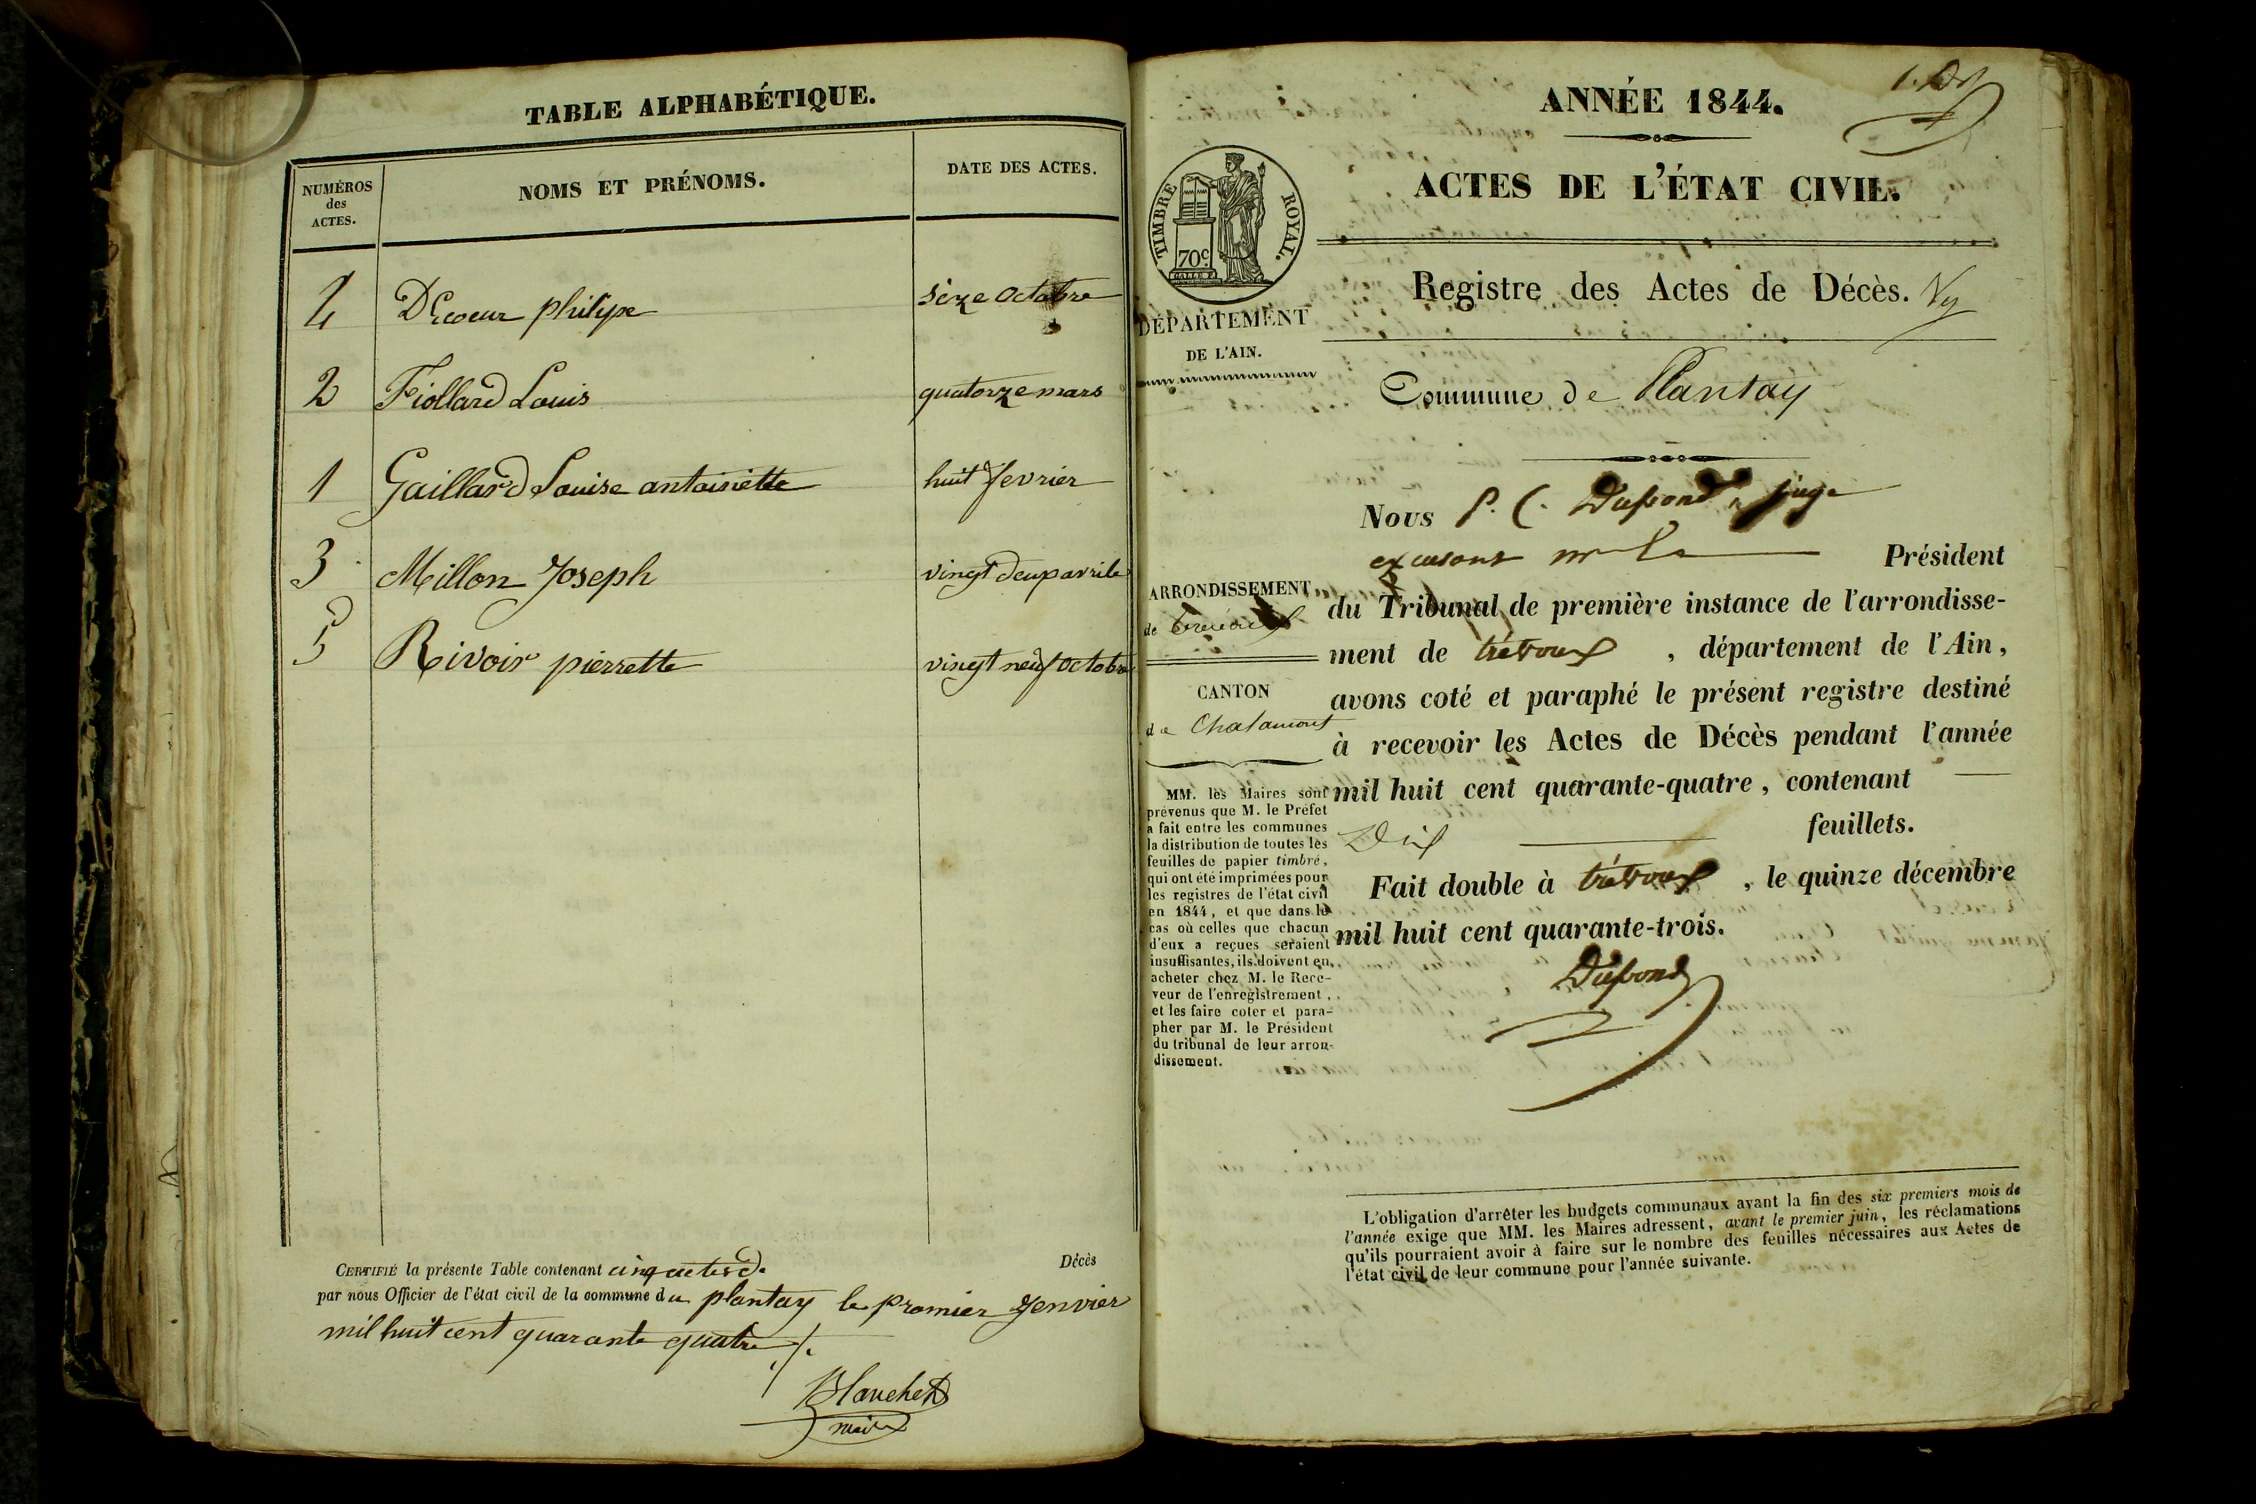 TABLE ALPHABÉTIQUE.
NUMÉROS
des
ACTES.
NOMS ET PRÉNOMS.
DATE DES ACTES.
4 Decoeur philipe sèze Octobre
2 Fiollard Louis quatorze mars
1 Gaillard Louise antoinette huit fevrier
3 Millon Joseph vingt deux avrile
5 Rivoir pierrette vingt neuf octobre
CERTIFIÉ la présente Table contenant cinq actes de Décès
par nous Officier de l'état civil de la commune du plantay le promier Jenvier
mil huit cent quarante quatre
Blanchet
maire
ANNÉE 1844.
ACTES DE L'ÉTAT CIVIL.
TIMBRE ROYAL.
70c.
Registre des Actes de Décès.
DÉPARTEMENT
DE L'AIN.
Commune de Plantay
Nous P. C. Dupond, juge
excusant mr le Président
ARRONDISSEMENT
de trévoux
du Tribunal de première instance de l'arrondisse-
ment de trévoux, département de l'Ain,
avons coté et paraphé le présent registre destiné
à recevoir les Actes de Décès pendant l'année
mil huit cent quarante-quatre, contenant
Dix feuillets.
Fait double à trévoux, le quinze décembre
mil huit cent quarante-trois.
Dupond
CANTON
de Chalamont
MM. les Maires sont
prévenus que M. le Préfet
a fait entre les communes
la distribution de toutes les
feuilles de papier timbré,
qui ont été imprimées pour
les registres de l'état civil
en 1844, et que dans le
cas où celles que chacun
d'eux a reçues seraient
insuffisantes, ils doivent en
acheter chez M. le Rece-
veur de l'enregistrement,
et les faire coter et para-
pher par M. le Président
du tribunal de leur arron-
dissement.
L'obligation d'arrêter les budgets communaux avant la fin des six premiers mois de
l'année exige que MM. les Maires adressent, avant le premier juin, les réclamations
qu'ils pourraient avoir à faire sur le nombre des feuilles nécessaires aux Actes de
l'état civil de leur commune pour l'année suivante.